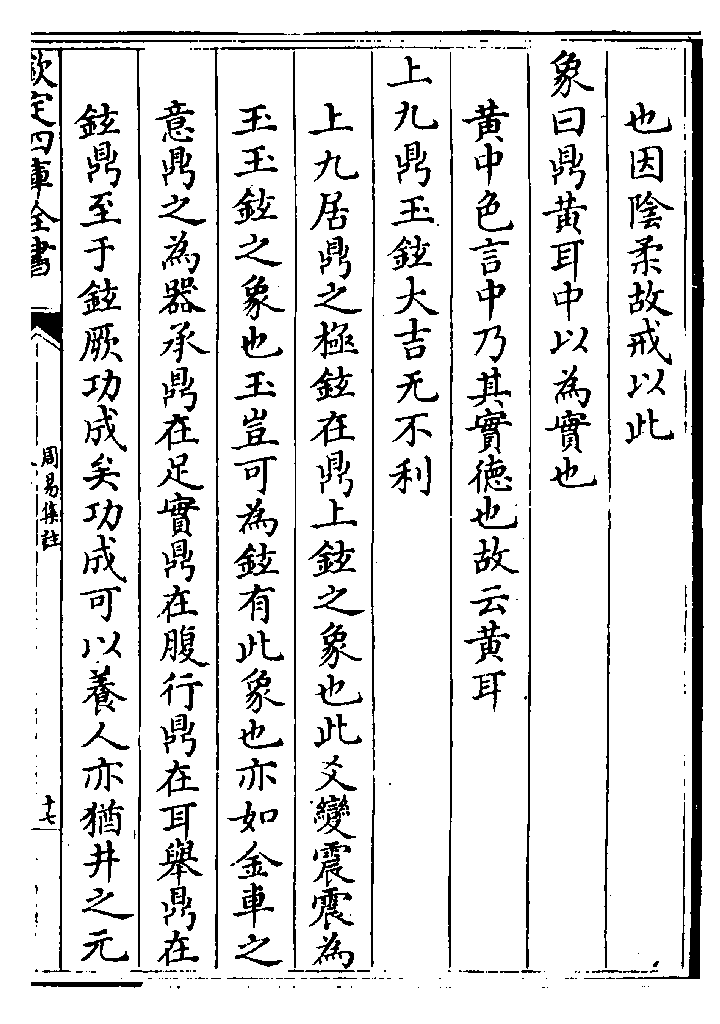 也因陰柔故戒以此
象曰鼎黃耳中以為實也
黃中色言中乃其實德也故云黃耳
上九鼎玉鉉大吉无不利
上九居鼎之極鉉在鼎上鉉之象也此爻變震震為
玉玉鉉之象也玉豈可為鉉有此象也亦如金車之
意鼎之為器承鼎在足實鼎在腹行鼎在耳舉鼎在
鉉鼎至于鉉厥功成矣功成可以養人亦猶井之元
欽定四庫全書
周易集註
十七